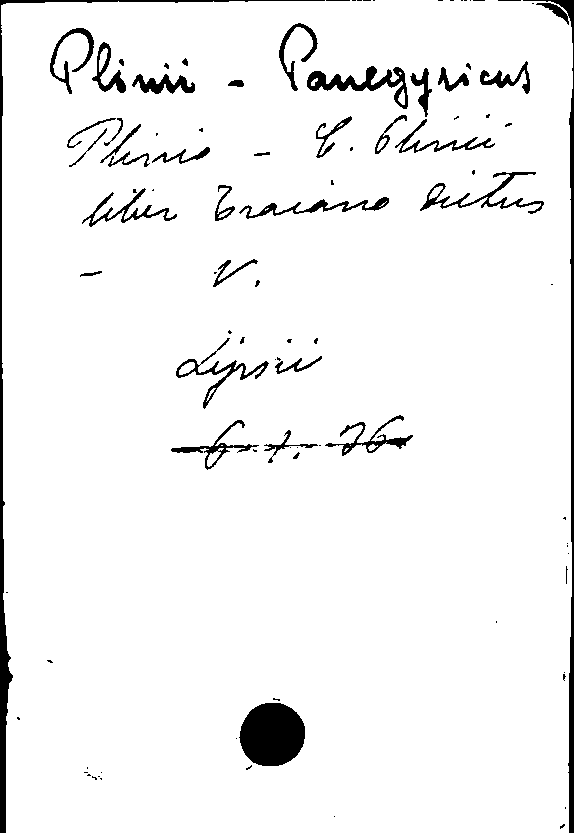 Plinii - Panegyricus
Plinio - C. Plinii
liber Traiano dictus
- V.
Lipsii
6. 1. 76